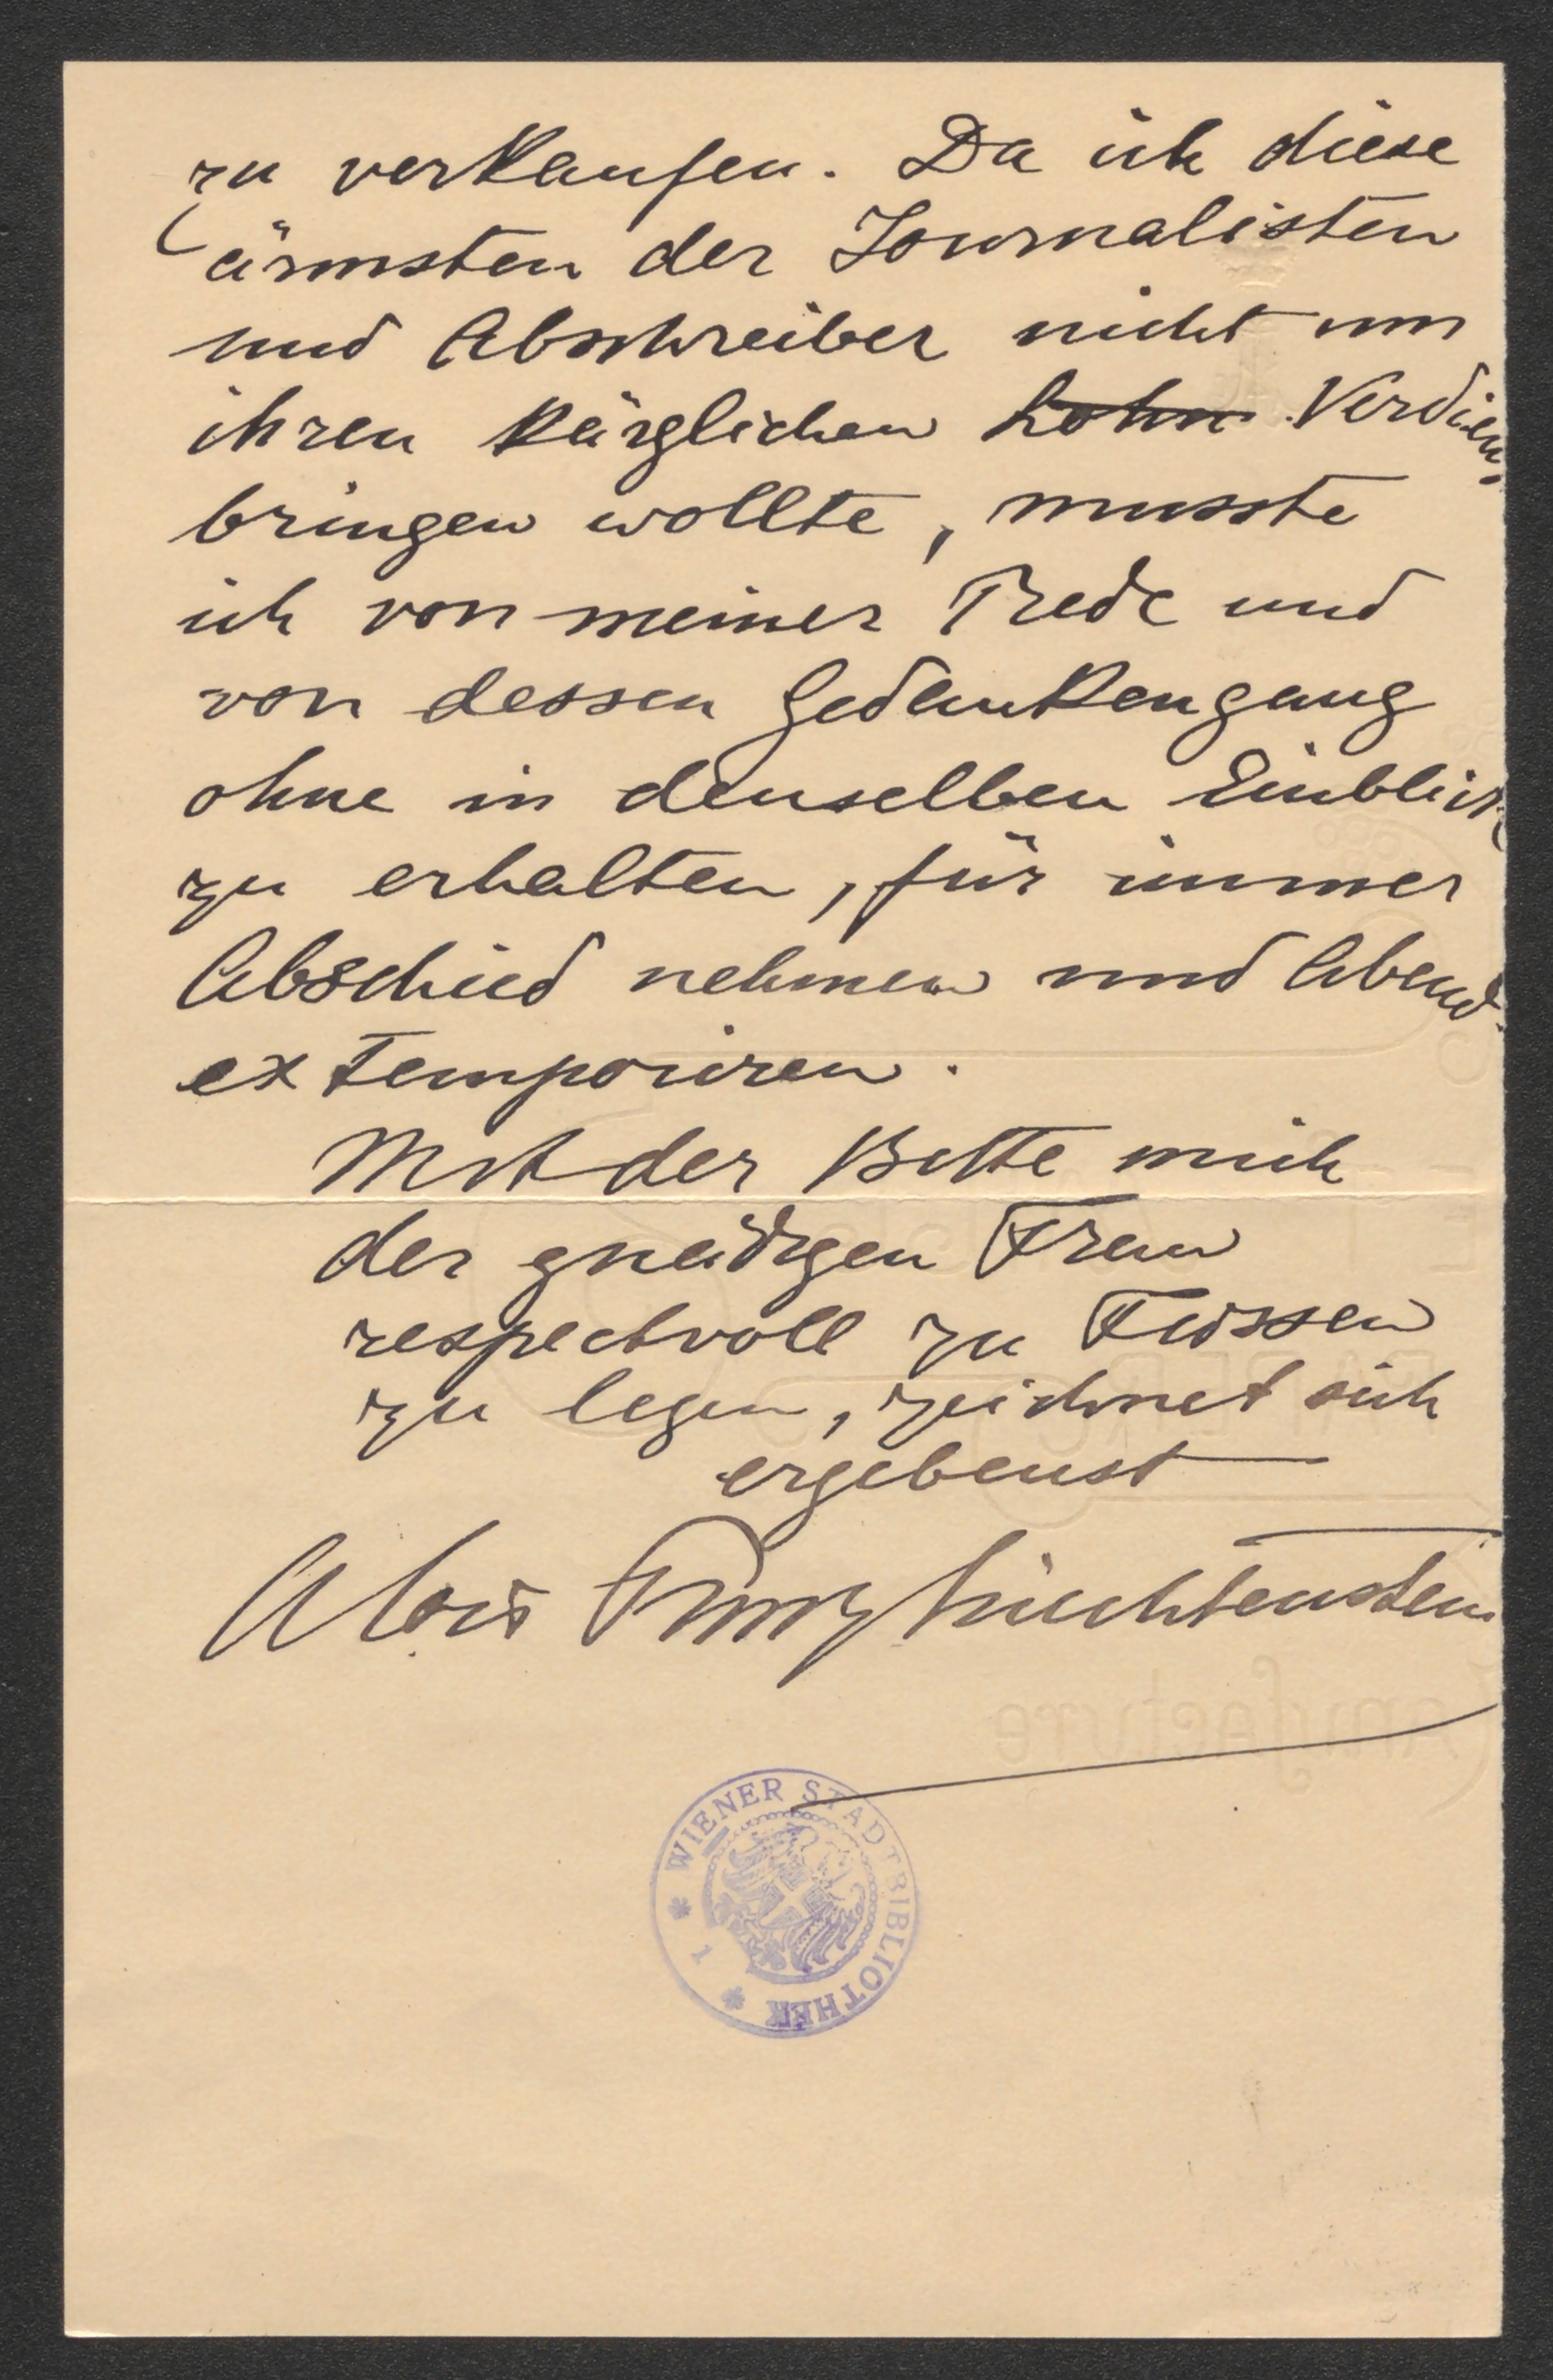 zu verkaufen. Da ich diese
ärmsten der Journalisten
und Abschreiber nicht um
ihren kärglichen Lohn Verdien
bringen wollte, musste
ich von meiner Rede und
von dessen Gedankengang
ohne in denselben Einblick
zu erhalten, für immer
Abschied nehmen und Abend
extemporiren.
Mit der Bitte mich
der gnädigen Frau
respectvoll zu Füssen
zu legen, zeichnet sich
ergebenst
Alois Prinz Liechtenstein
WIENER STADTBIBLIOTHEK
1